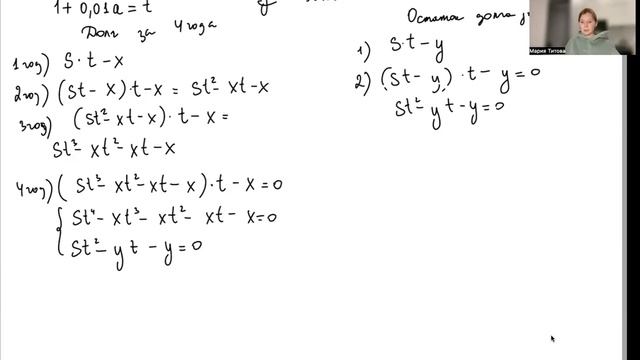 1 + 0,01a = t
Долг за 4 года
1 год) S·t − x
2 год) (St − x)t − x = St² − xt − x
3 год) (St² − xt − x)·t − x =
St³ − xt² − xt − x
4 год) (St³ − xt² − xt − x)·t − x = 0
{ St⁴ − xt³ − xt² − xt − x = 0
St² − yt − y = 0
Остаток долга
1) S·t − y
2) (St − y)·t − y = 0
St² − yt − y = 0
Мария Титова